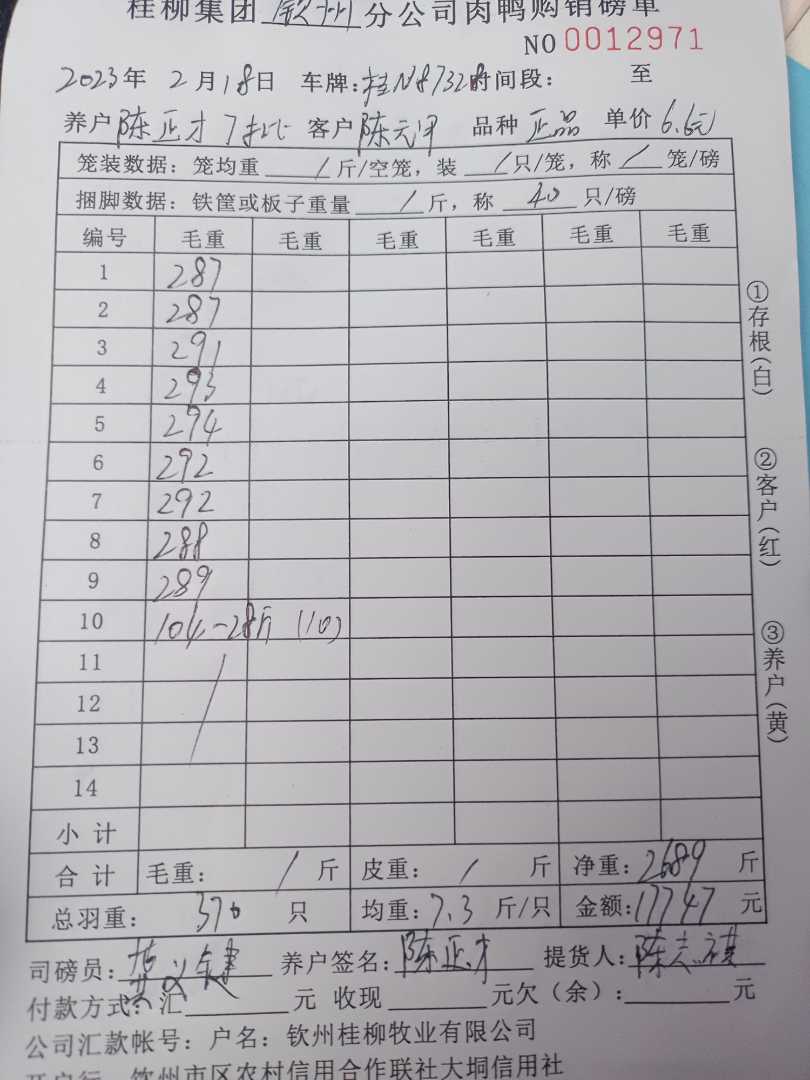 桂柳集团 钦州 分公司肉鸭购销磅单
NO 0012971
2023年 2月18日 车牌:桂N8732 时间段: 至
养户 陈正才 客户 陈元 品种 正品 单价 6.6元
笼装数据：笼均重 / 斤/空笼，装 / 只/笼，称 / 笼/磅
捆脚数据：铁筐或板子重量 / 斤，称 40 只/磅
编号 毛重 毛重 毛重 毛重 毛重 毛重
1 287
2 287
3 291
4 293
5 294
6 292
7 292
8 288
9 289
10 104-28斤 (10)
11 /
12
13
14
小计
合计 毛重: / 斤 皮重: / 斤 净重: 2689 斤
总羽重: 370 只 均重: 7.3 斤/只 金额: 17747 元
①存根(白)
②客户(红)
③养户(黄)
司磅员: 养户签名: 陈正才 提货人: 陈志
付款方式: 汇 元 收现 元欠（余）: 元
公司汇款帐号: 户名: 钦州桂柳牧业有限公司
开户行 钦州市区农村信用合作联社大垌信用社